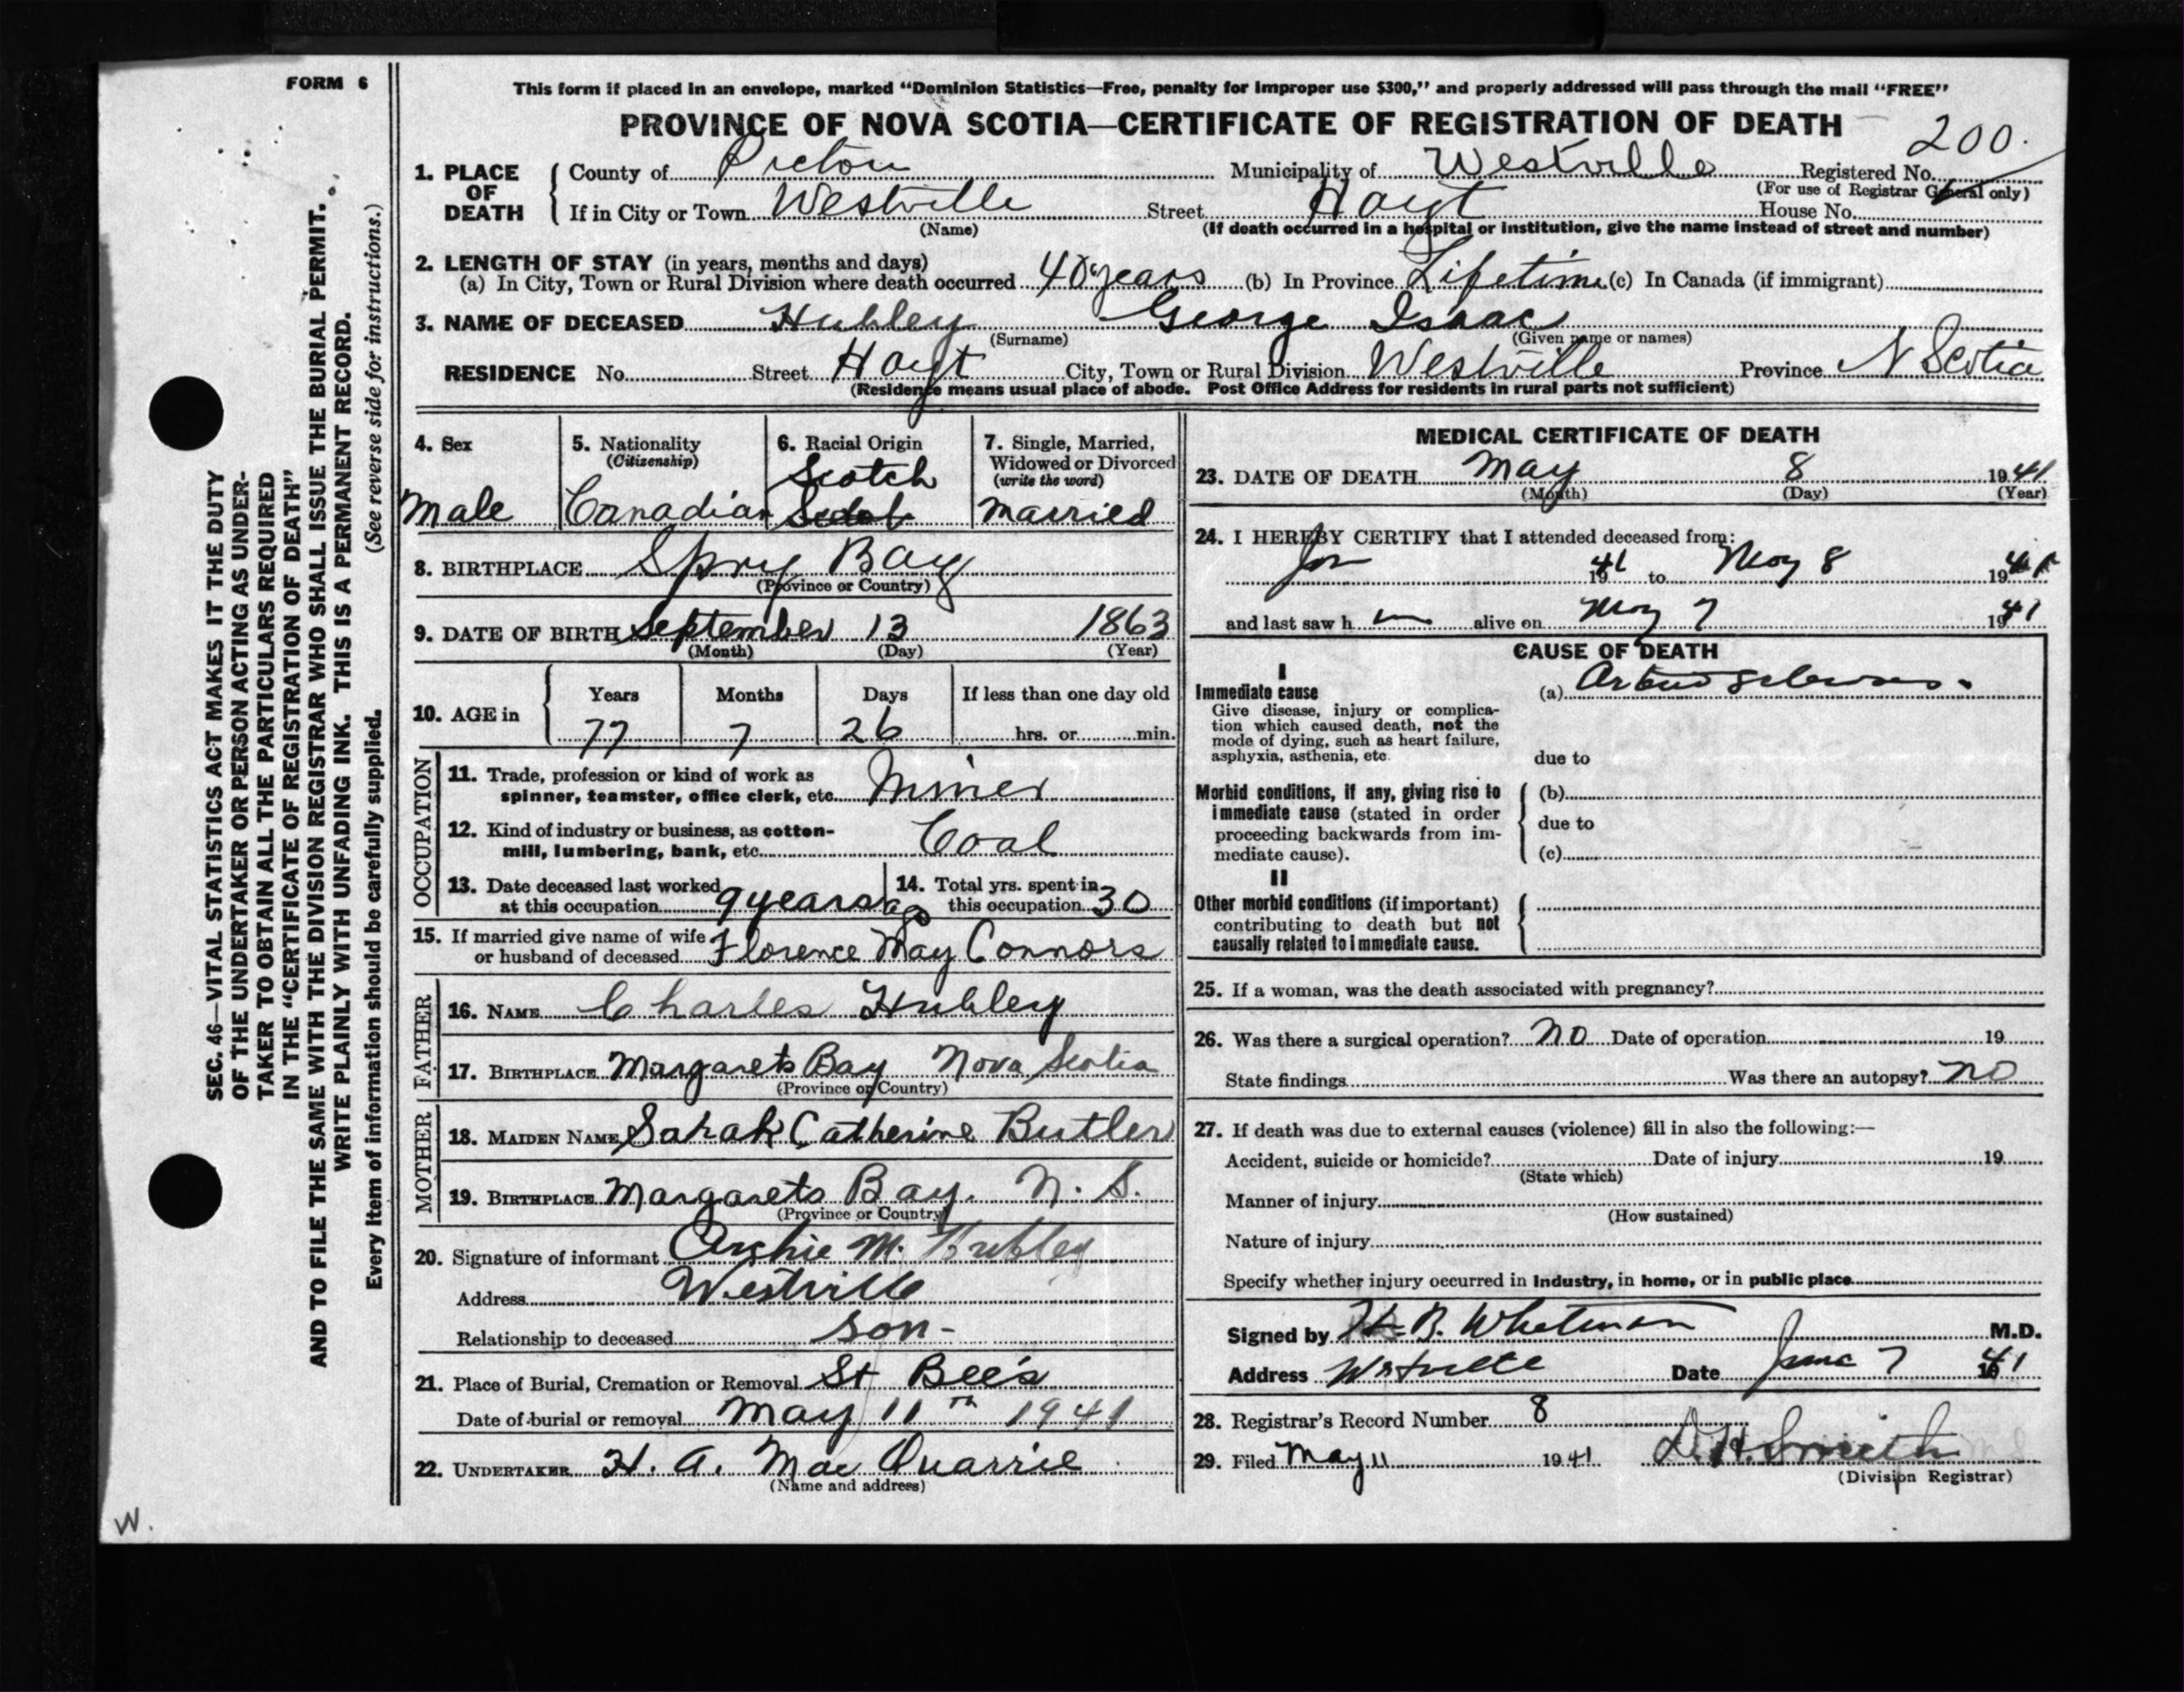 FORM 6
This form if placed in an envelope, marked "Dominion Statistics—Free, penalty for improper use $300," and properly addressed will pass through the mail "FREE"
PROVINCE OF NOVA SCOTIA—CERTIFICATE OF REGISTRATION OF DEATH
200.
1. PLACE OF DEATH
County of Pictou Municipality of Westville Registered No.
(For use of Registrar General only)
If in City or Town Westville Street Hoyt House No.
(Name) (If death occurred in a hospital or institution, give the name instead of street and number)
2. LENGTH OF STAY (in years, months and days)
(a) In City, Town or Rural Division where death occurred 40 years (b) In Province Lifetime (c) In Canada (if immigrant)
3. NAME OF DECEASED Hubley George Isaac
(Surname) (Given name or names)
RESIDENCE No. Street Hoyt City, Town or Rural Division Westville Province N Scotia
(Residence means usual place of abode. Post Office Address for residents in rural parts not sufficient)
4. Sex
Male
5. Nationality
(Citizenship)
Canadian
6. Racial Origin
Scotch
7. Single, Married,
Widowed or Divorced
(write the word)
Married
8. BIRTHPLACE Spry Bay
(Province or Country)
9. DATE OF BIRTH September 13 1863
(Month) (Day) (Year)
10. AGE in
Years Months Days If less than one day old
77 7 26 hrs. or min.
OCCUPATION
11. Trade, profession or kind of work as
spinner, teamster, office clerk, etc. Miner
12. Kind of industry or business, as cotton-
mill, lumbering, bank, etc. Coal
13. Date deceased last worked
at this occupation 9 years ago
14. Total yrs. spent in
this occupation 30
15. If married give name of wife
or husband of deceased Florence May Connors
FATHER
16. NAME Charles Hubley
17. BIRTHPLACE Margarets Bay Nova Scotia
(Province or Country)
MOTHER
18. MAIDEN NAME Sarah Catherine Butler
19. BIRTHPLACE Margarets Bay. N. S.
(Province or Country)
20. Signature of informant Archie M. Hubley
Address Westville
Relationship to deceased son-
21. Place of Burial, Cremation or Removal St Bee's
Date of burial or removal May 11th 1941
22. UNDERTAKER H. A. Mac Quarrie
(Name and address)
MEDICAL CERTIFICATE OF DEATH
23. DATE OF DEATH May 8 1941
(Month) (Day) (Year)
24. I HEREBY CERTIFY that I attended deceased from:
Jan 1941 to May 8 1941
and last saw h im alive on May 7 1941
CAUSE OF DEATH
I
Immediate cause
Give disease, injury or complica-
tion which caused death, not the
mode of dying, such as heart failure,
asphyxia, asthenia, etc.
(a)
due to
Morbid conditions, if any, giving rise to
immediate cause (stated in order
proceeding backwards from im-
mediate cause).
(b)
due to
(c)
II
Other morbid conditions (if important)
contributing to death but not
causally related to immediate cause.
25. If a woman, was the death associated with pregnancy?
26. Was there a surgical operation? no Date of operation 19
State findings Was there an autopsy? no
27. If death was due to external causes (violence) fill in also the following:—
Accident, suicide or homicide? Date of injury 19
(State which)
Manner of injury
(How sustained)
Nature of injury
Specify whether injury occurred in industry, in home, or in public place
Signed by H. B. Whitman M.D.
Address Westville Date June 7 1941
28. Registrar's Record Number 8
29. Filed May 11 1941 D. H. Smith
(Division Registrar)
SEC. 46—VITAL STATISTICS ACT MAKES IT THE DUTY
OF THE UNDERTAKER OR PERSON ACTING AS UNDER-
TAKER TO OBTAIN ALL THE PARTICULARS REQUIRED
IN THE "CERTIFICATE OF REGISTRATION OF DEATH"
AND TO FILE THE SAME WITH THE DIVISION REGISTRAR WHO SHALL ISSUE THE BURIAL PERMIT.
WRITE PLAINLY WITH UNFADING INK. THIS IS A PERMANENT RECORD.
Every item of information should be carefully supplied. (See reverse side for instructions.)
W.